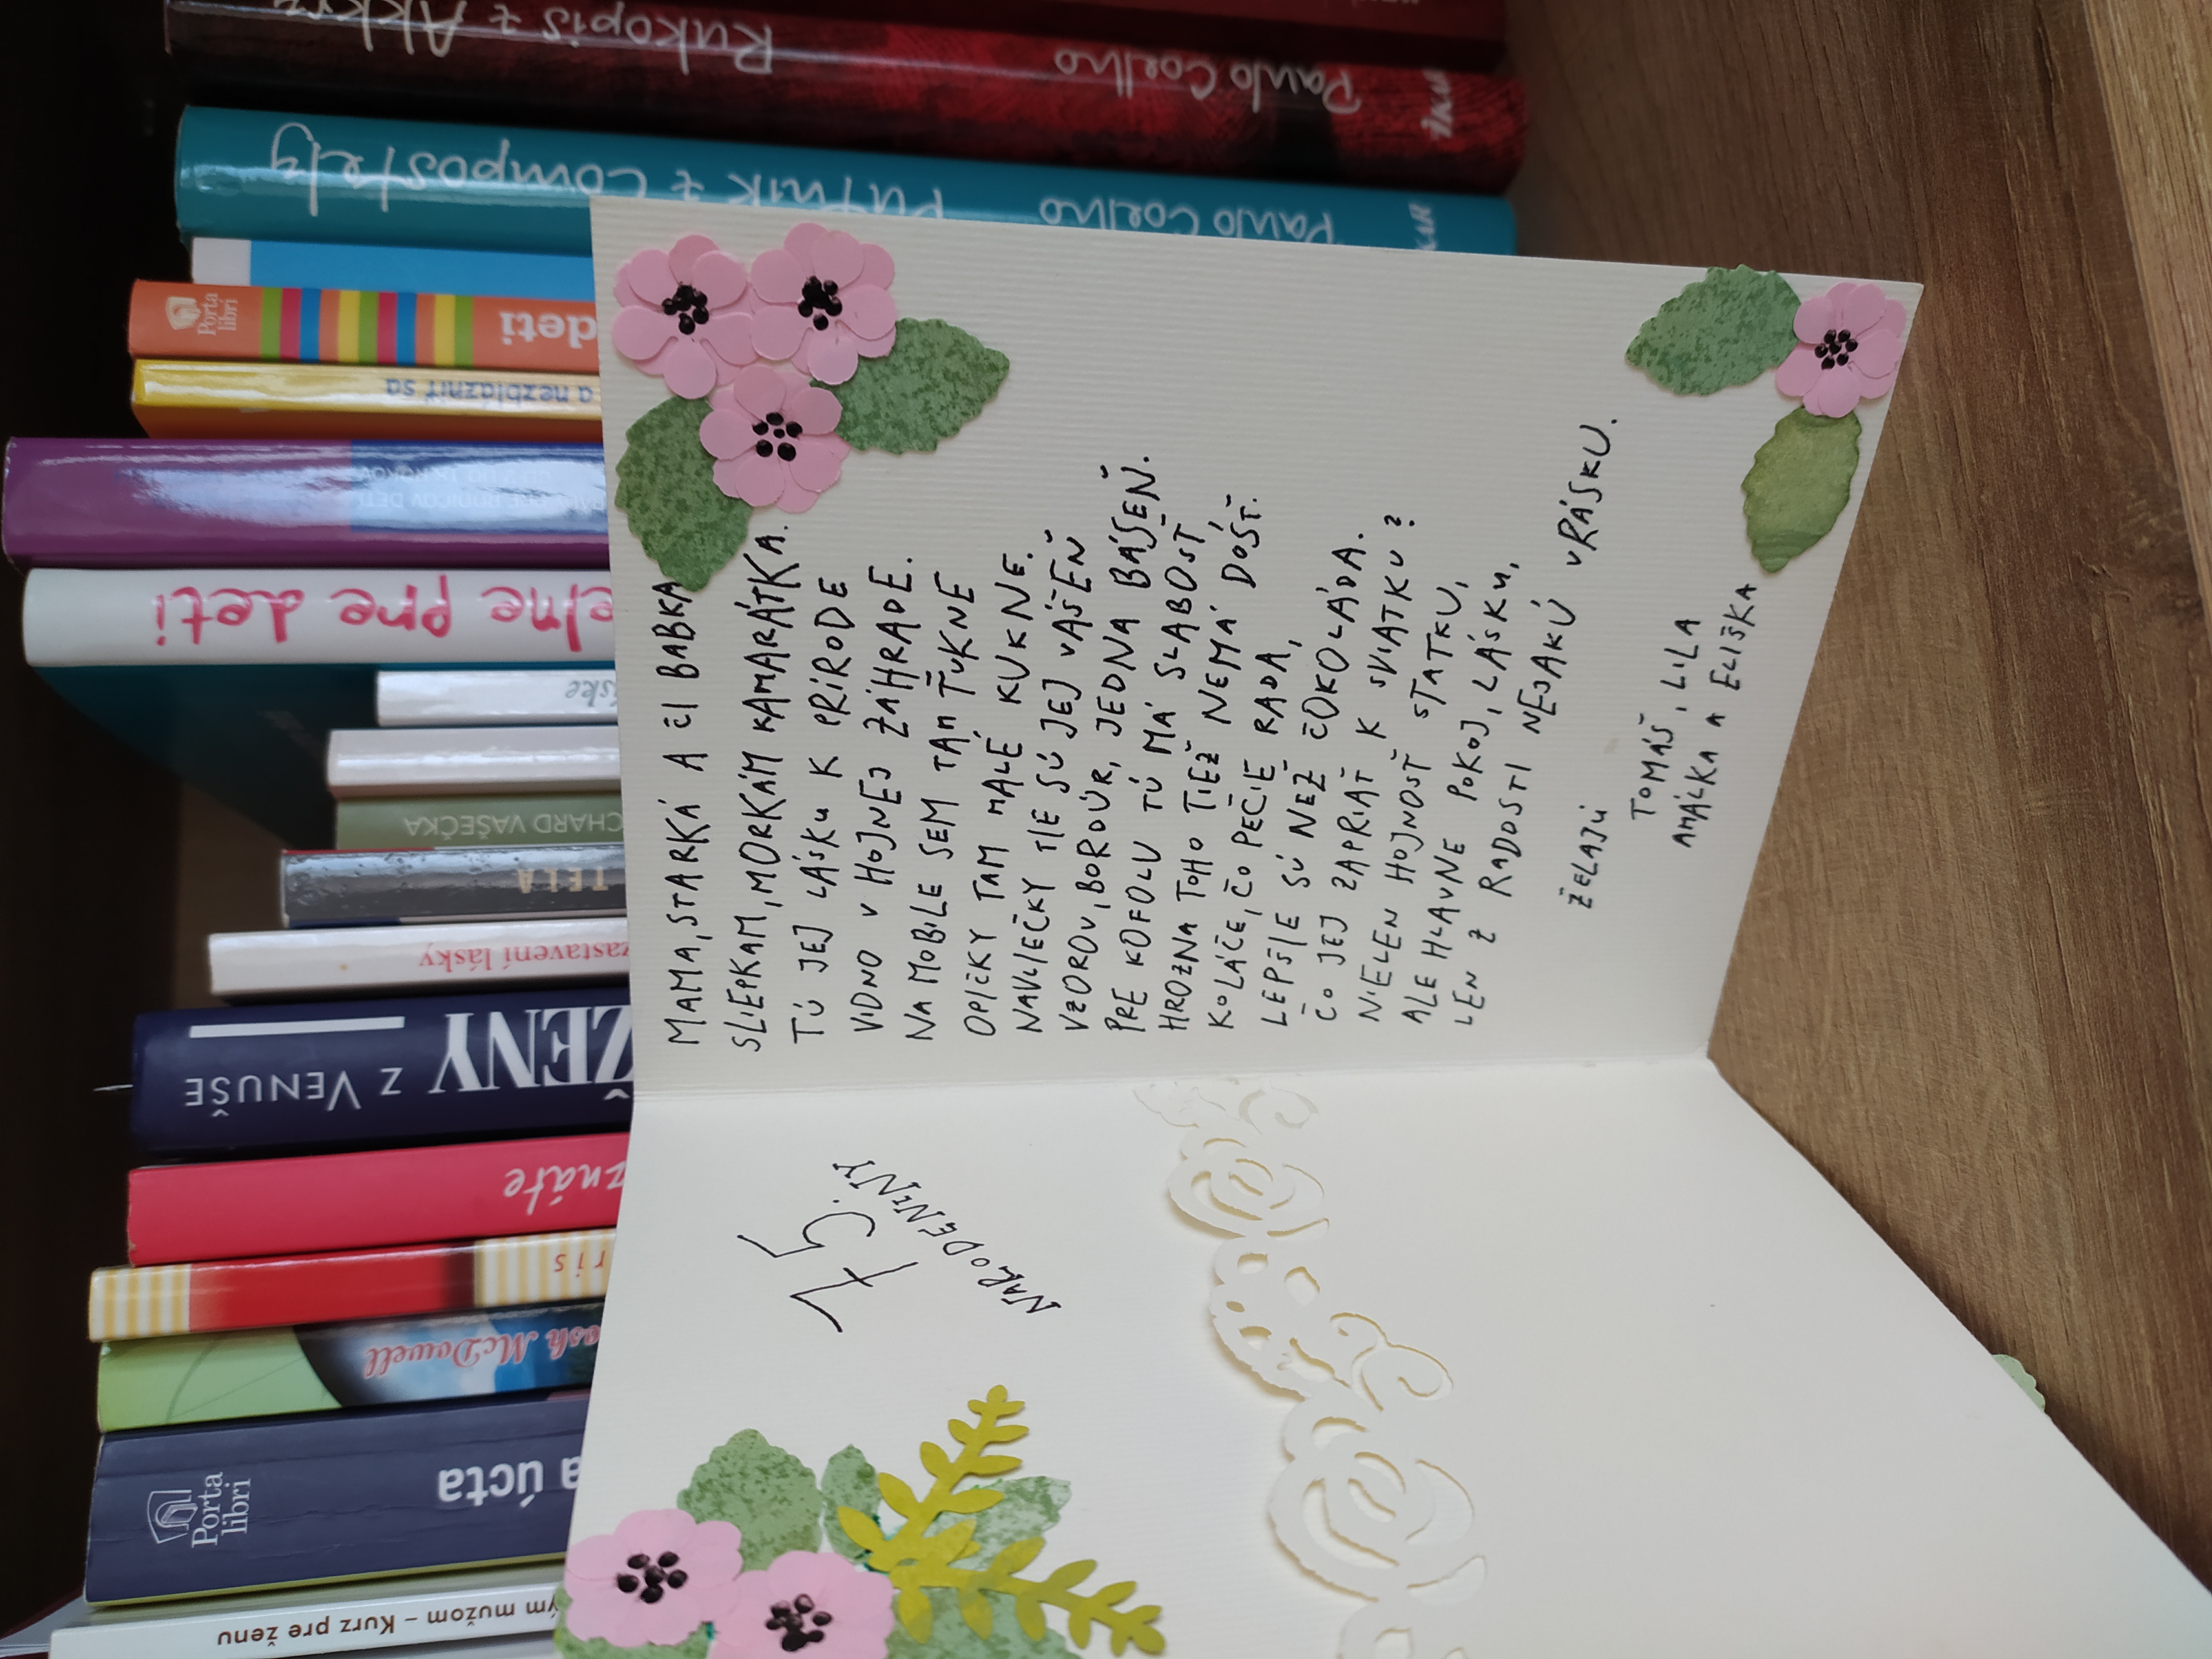 75.
NARODENINY
MAMA, STARKÁ A ČI BABKA
SLIEPKAM, MORKÁM KAMARÁTKA.
TÚ JEJ LÁSKU K PRÍRODE
VIDNO V HOJNEJ ZÁHRADE.
NA MOBILE SEM TAM ŤUKNE
OPIČKY TAM MALÉ KUKNE.
NAVLIEČKY TIE SÚ JEJ VÁŠEŇ
VZOROV, BORDÚR, JEDNA BÁSEŇ.
PRE KOFOLU TÚ MÁ SLABOSŤ
HROZNA TOHO TIEŽ NEMÁ DOSŤ.
KOLÁČE, ČO PEČIE RADA,
LEPŠIE SÚ NEŽ ČOKOLÁDA.
ČO JEJ ZAPRIAŤ K SVIATKU?
NIELEN HOJNOSŤ STATKU,
ALE HLAVNE POKOJ, LÁSKU,
LEN Z RADOSTI NEJAKÚ VRÁSKU.
ŽELAJÚ
TOMÁŠ, LILA
AMÁLKA A ELIŠKA
Paulo Coelho Rukopis z Akkry
Paulo Coelho Pútnik z Compostely
IKAR
Porta libri
deti
a nezblázniť sa
pre deti
CHARD VAŠEČKA
TELA
zastavení lásky
ŽENY Z VENUŠE
znáte
ris
osh McDowell
a úcta
Porta libri
ým mužom – Kurz pre ženu